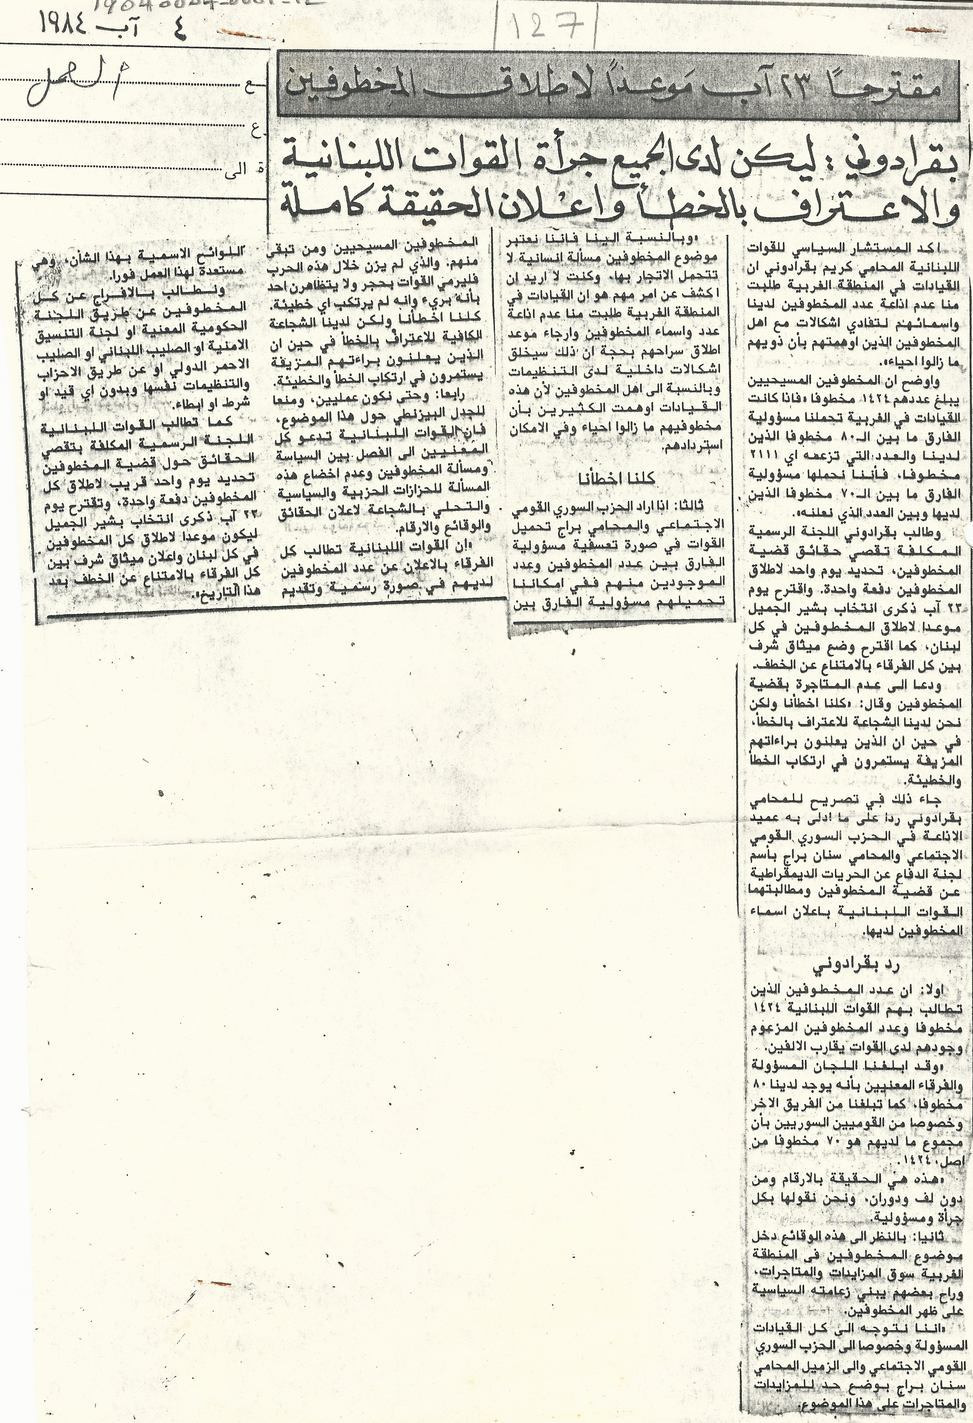 19840804
127
٤ آب ١٩٨٤
العمل
ع
ع
ة الى
مقترحاً ٢٣ آب موعداً لاطلاق المخطوفين
بقرادوني : ليكن لدى الجميع جرأة القوات اللبنانية
والاعتراف بالخطأ واعلان الحقيقة كاملة
اكد المستشار السياسي للقوات
اللبنانية المحامي كريم بقرادوني ان
القيادات في المنطقة الغربية طلبت
منا عدم اذاعة عدد المخطوفين لدينا
واسمائهم لتفادي اشكالات مع اهل
المخطوفين الذين اوهمتهم بأن ذويهم
ما زالوا احياء».
واوضح ان المخطوفين المسيحيين
يبلغ عددهم ١٤٢٤ مخطوفا «فاذا كانت
القيادات في الغربية تحملنا مسؤولية
الفارق ما بين الـ٨٠ مخطوفا الذين
لدينا والعدد التي تزعمه اي ٢١١١
مخطوفا، فأننا نحملها مسؤولية
الفارق ما بين الـ٧٠ مخطوفا الذين
لديها وبين العدد الذي نعلنه».
وطالب بقرادوني اللجنة الرسمية
المكلفة تقصي حقائق قضية
المخطوفين، تحديد يوم واحد لاطلاق
المخطوفين دفعة واحدة. واقترح يوم
٢٣ آب ذكرى انتخاب بشير الجميل
موعدا لاطلاق المخطوفين في كل
لبنان، كما اقترح وضع ميثاق شرف
بين كل الفرقاء بالامتناع عن الخطف.
ودعا الى عدم المتاجرة بقضية
المخطوفين وقال: «كلنا اخطأنا ولكن
نحن لدينا الشجاعة للاعتراف بالخطأ،
في حين ان الذين يعلنون براءاتهم
المزيفة يستمرون في ارتكاب الخطأ
والخطيئة.
جاء ذلك في تصريح للمحامي
بقرادوني ردا على ما ادلى به عميد
الاذاعة في الحزب السوري القومي
الاجتماعي والمحامي سنان براج بأسم
لجنة الدفاع عن الحريات الديمقراطية
عن قضية المخطوفين ومطالبتهما
القوات اللبنانية باعلان اسماء
المخطوفين لديها.
رد بقرادوني
اولا: ان عدد المخطوفين الذين
تطالب بهم القوات اللبنانية ١٤٢٤
مخطوفا وعدد المخطوفين المزعوم
وجودهم لدى القوات يقارب الالفين.
«وقد ابلغنا اللجان المسؤولة
والفرقاء المعنيين بأنه يوجد لدينا ٨٠
مخطوفا، كما تبلغنا من الفريق الاخر
وخصوصا من القوميين السوريين بأن
مجموع ما لديهم هو ٧٠ مخطوفا من
اصل ١٤٢٤.
«هذه هي الحقيقة بالارقام ومن
دون لف ودوران، ونحن نقولها بكل
جرأة ومسؤولية.
ثانيا: بالنظر الى هذه الوقائع دخل
موضوع المخطوفين في المنطقة
الغربية سوق المزايدات والمتاجرات،
وراح بعضهم يبني زعامته السياسية
على ظهر المخطوفين.
«اننا نتوجه الى كل القيادات
المسؤولة وخصوصا الى الحزب السوري
القومي الاجتماعي والى الزميل المحامي
سنان براج بوضع حد للمزايدات
والمتاجرات على هذا الموضوع.
«وبالنسبة الينا فاننا نعتبر
موضوع المخطوفين مسألة انسانية لا
تتحمل الاتجار بها، وكنت لا اريد ان
اكشف عن امر مهم هو ان القيادات في
المنطقة الغربية طلبت منا عدم اذاعة
عدد واسماء المخطوفين وارجاء موعد
اطلاق سراحهم بحجة ان ذلك سيخلق
اشكالات داخلية لدى التنظيمات
وبالنسبة الى اهل المخطوفين لأن هذه
القيادات اوهمت الكثيرين بأن
مخطوفيهم ما زالوا احياء وفي الامكان
استردادهم.
كلنا اخطأنا
ثالثا: اذا اراد الحزب السوري القومي
الاجتماعي والمحامي براج تحميل
القوات في صورة تعسفية مسؤولية
الفارق بين عدد المخطوفين وعدد
الموجودين منهم ففي امكاننا
تحميلهم مسؤولية الفارق بين
المخطوفين المسيحيين ومن تبقى
منهم، والذي لم يزن خلال هذه الحرب
فليرمي القوات بحجر ولا يتظاهرن احد
بأنه بريء وانه لم يرتكب اي خطيئة.
كلنا اخطأنا ولكن لدينا الشجاعة
الكافية للاعتراف بالخطأ في حين ان
الذين يعلنون براءتهم المزيفة
يستمرون في ارتكاب الخطأ والخطيئة.
رابعا: وحتى نكون عمليين، ومنعا
للجدل البيزنطي حول هذا الموضوع،
فان القوات اللبنانية تدعو كل
المعنيين الى الفصل بين السياسة
ومسألة المخطوفين وعدم اخضاع هذه
المسألة للحزازات الحزبية والسياسية
والتحلي بالشجاعة لاعلان الحقائق
والوقائع والارقام.
«ان القوات اللبنانية تطالب كل
الفرقاء بالاعلان عن عدد المخطوفين
لديهم في صورة رسمية وتقديم
اللوائح الاسمية بهذا الشأن، وهي
مستعدة لهذا العمل فورا.
ونطالب بالافراج عن كل
المخطوفين عن طريق اللجنة
الحكومية المعنية او لجنة التنسيق
الامنية او الصليب اللبناني او الصليب
الاحمر الدولي او عن طريق الاحزاب
والتنظيمات نفسها وبدون اي قيد او
شرط او ابطاء.
كما تطالب القوات اللبنانية
اللجنة الرسمية المكلفة بتقصي
الحقائق حول قضية المخطوفين
تحديد يوم واحد قريب لاطلاق كل
المخطوفين دفعة واحدة، وتقترح يوم
٢٣ آب ذكرى انتخاب بشير الجميل
ليكون موعدا لاطلاق كل المخطوفين
في كل لبنان واعلان ميثاق شرف بين
كل الفرقاء بالامتناع عن الخطف بعد
هذا التاريخ».